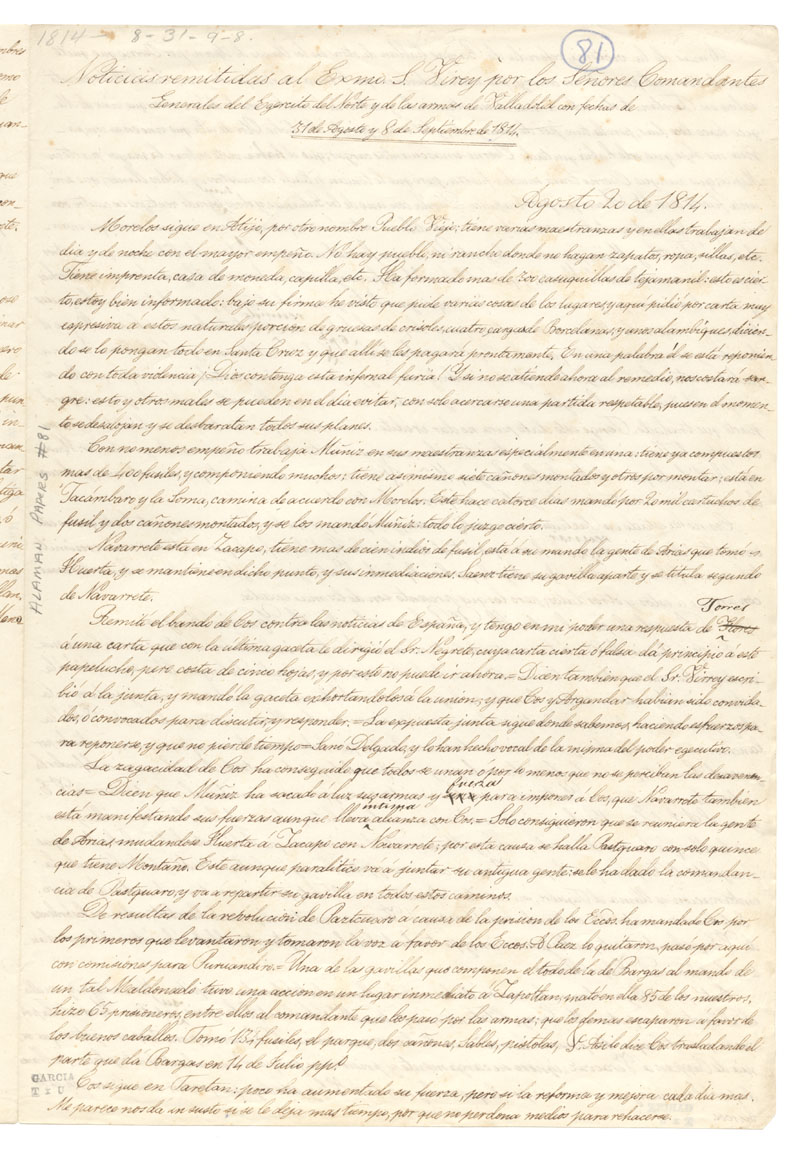 1814 — 8-31-9-8.
81
Noticias remitidas al Exmo. S. Virey por los Señores Comandantes
Generales del Egercito del Norte y de las armas de Valladolid con fechas de
31 de Agosto y 8 de Septiembre de 1814.
Agosto 20 de 1814.
Morelos sigue en Atijo, por otro nombre Pueblo Viejo: tiene varias maestranzas y en ellas trabajan de
dia y de noche con el mayor empeño. No hay pueblo, ni rancho donde no hagan zapatos, ropa, sillas, etc.
Tiene imprenta, casa de moneda, capilla, etc. Ha formado mas de 200 casuquillas de tejamanil: esto es cier-
to, estoy bien informado: bajo su firma he visto que pide varias cosas de los lugares y aqui pidió por carta muy
espresiva a estos naturales porcion de gruesas de crisoles, cuatro cargas de Porcelanas, y unos alambiques, dicién-
do se lo pongan todo en Santa Cruz y que allí se les pagará prontamente. En una palabra él se está reponien-
do con toda violencia ¡Dios contenga esta infernal furia! Y si no se atiende ahora al remedio, nos costará san-
gre: esto y otros males se pueden en el dia evitar, con solo acercarse una partida respetable, pues en el momen-
to se desalojan y se desbaratan todos sus planes.
Con no menos empeño trabaja Muñiz en sus maestranzas especialmente en una: tiene ya compuestos
mas de 400 fusiles, y componiendo muchos: tiene asimismo siete cañones montados y otros por montar: está en
Tacámbaro y la Loma, camina de acuerdo con Morelos. Este hace catorce dias mandó por 20 mil cartuchos de
fusil y dos cañones montados, y se los mandó Muñiz: todo lo juzgo cierto.
Navarrete está en Zacapo, tiene mas de cien indios de fusil, está a su mando la gente de Arias que tomó
Huerta, y se mantiene en dicho punto, y sus inmediaciones. Saenz tiene su gavilla aparte y se titula segundo
de Navarrete.
Torres
Remití el bando de Cos contra las noticias de España, y tengo en mi poder una respuesta de Flores
á una carta que con la última gaceta le dirigió el Sr. Negrete, cuya carta cierta ó falsa dá principio á este
papelucho, pero costa de cinco hojas, y por esto no puede ir ahora = Dicen también que el Sr. Virrey escri-
bió á la junta, y mandó la gaceta exhortandolos á la union, y que Cos y Argandar habian sido convida-
dos, ó convocados para discutir, y responder. = La expuesta junta sigue donde sabemos, haciendo esfuerzos pa-
ra reponerse, y que no pierde tiempo = Sanó Delgado, y lo han hecho vocal de la misma del poder egecutivo.
La zagacidad de Cos ha conseguido que todos se unan ó por lo menos que no se perciban las desavenen-
fuerza
cias = Dicen que Muñiz ha sacado á luz sus armas y para imponer á Cos, que Navarrete tambien
intima
está manifestando sus fuerzas aunque lleva alianza con Cos. = Solo consiguieron que se reuniera la gente
de Arias, mudandose Huerta á Zacapo con Navarrete; por esta causa se halla Pastquaro con solo quince
que tiene Montaño. Este aunque paralitico vá á juntar su antigua gente: se le ha dado la comandan-
cia de Pastquaro, y va a repartir su gavilla en todos estos caminos.
De resultas de la revolucion de Pazteuaro a causa de la prision de los Eccos. ha mandado Cos por
los primeros que levantaron y tomaron la voz a favor de los Eccos. A Paez lo quitaron, pasó por aqui
con comisiones para Puruandiro. = Una de las gavillas que componen el todo de la de Bargas al mando de
un tal Maldonado tuvo una accion en un lugar inmediato á Zapotlan, mató en ella 85 de los nuestros,
hizo 65 prisioneros, entre ellos al comandante que los pasó por las armas; que los demas escaparon á favor de
los buenos caballos. Tomó fusiles, el parque, dos cañones, Sables, pistolas, &. Asi lo dice Cos trasladando el
parte que dá Bargas en 14 de Julio pp.º
Cos sigue en Taretan: poco ha aumentado su fuerza, pero si la reforma y mejora cada dia mas.
Me parece nos da un susto si se le deja mas tiempo, por que no perdona medios para rehacerse.
ALAMAN PAPERS #81
GARCIA